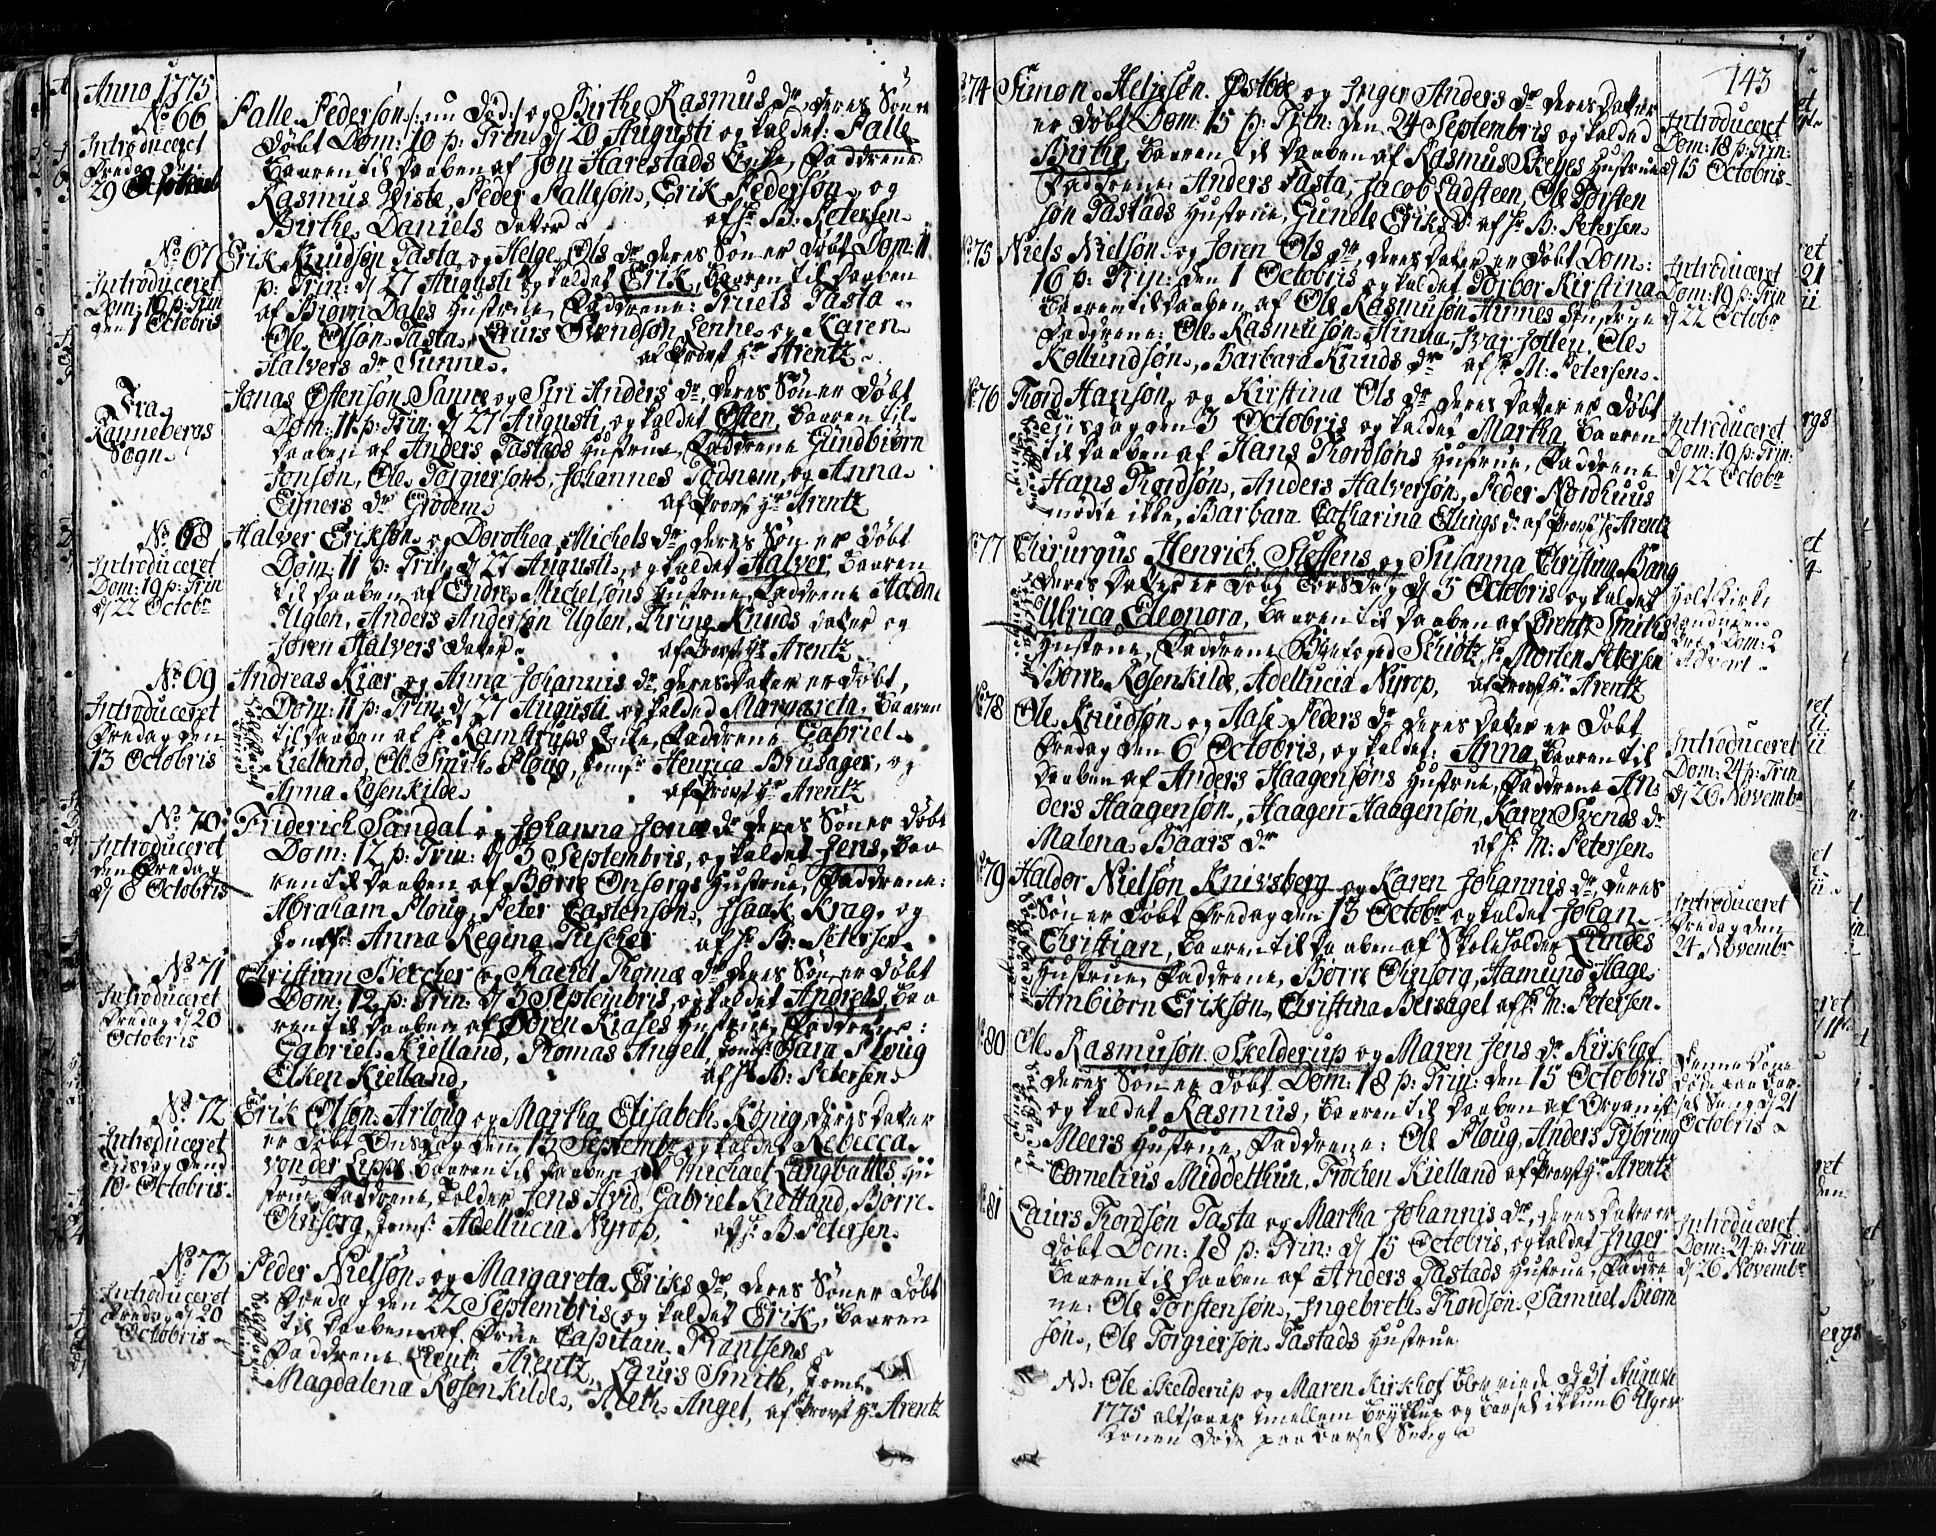 Anno 1775
No 66
Introduceret
Fredag den
29
Palle Pedersøn /: nu død :/ og Birthe Rasmus dr, deres Søn er
døbt Dom: 10 p: Trin: d 20 Augusti og kaldet Palle
baaren til daaben af Jon Harestads Enke, Faddrene
Rasmus Viste, Peder Pallesøn, Erik Pedersøn og
Birthe Daniels datter af Hr B: Petersen
No 67
Introduceret
Dom: 19 p: Trin
den 1 Octobris
Erik Knudsøn Tasta og Helge Ols dr deres Søn er døbt Dom: 11
p: Trin: d 27 Augusti og kaldet Erik, baaren til daaben
af Biørn Dales Hustrue, Faddrene: Truels Tasta
Ole Olsøn Tasta, Laurs Svendsøn Lenne og Karen
Halvers dr Sunne. af Provst Hr Arentz
Fra
Rannebergs
Sogn
Jonas Østensøn Sannes og Siri Anders dr, deres Søn er døbt
Dom: 11 p: Trin. d 27 Augusti, og kaldet Østen, baaren til
daaben af Anders Tastads Hustrue, Faddrene Gundbiørn
Jonsøn, Ole Torgiersøn, Johannes Todnem, og Anna
Eyners dr Grodem af Provst Hr Arentz
No 68
Introduceret
Dom: 19 p: Trin
d 22 Octobr
Halver Eriksøn og Dorothea Michels dr, deres Søn er døbt
Dom: 11 p: Trin, d 27 Augusti, og kaldet Halver, baaren
til daaben af Endre Michelsøns Hustrue, Faddrene
Uglen, Anders Andersøn Uglen, Trine Knuds datter og
Jøren Halvers datter af Provst Hr Arentz
No 69
Introduceret
Fredag den
13 Octobris
Andreas Kiær og Anna Johannis dr, deres datter er døbt,
Dom: 11 p: Trin: d 27 Augusti og kaldet Margareta, baaren
til daaben af Hr Kamstrups Enke, Faddrene Gabriel
Kielland, Ole Smith Ploug, Jomfr Henrica Brusager, og
Anna Rosenkilde af Provst Hr Arentz
No 70
Introduceret
den Fredag
d 8 Octobris
Friderich Sandal og Johanna Jonæ dr deres Søn er døbt
Dom: 12 p: Trin: d 3 Septembris, og kaldet Jens, baa
ren til daaben af Børre Onsorgs Hustrue, Faddrene:
Abraham Ploug, Peter Castensøn, Isaak Krag, og
Jomfr Anna Regina Tuscher af Hr B: Petersen
No 71
Introduceret
Fredag d 20
Octobris
Christian Beecher og Rachel Thomæ dr deres Søn er døbt
Dom: 12 p: Trin: d 3 Septembris, og kaldet Andreas, baa
ren til daaben af Søren Kiases Hustrue, Faddrene:
Gabriel Kielland, Thomas Angell, Jomfr Sara Ploug
Elken Kielland, af Hr B: Petersen
No 72
Introduceret
Tisdag den
10 Octobris
Erik Olsøn Arloug og Martha Elisabeth König, deres datter
er døbt Onsdag den 13 Septembr og kaldet Rebecca
von der Lippe baaren til daaben af Michael Langballes Hu
strue, Faddrene, Tolder Jens Hvid, Gabriel Kielland, Børre
Onsorg, Jomfr: Adellucia Nyrop, af Hr B: Petersen
No 73
Introduceret
Fredag d 20
Octobris
Peder Nielsøn og Margareta Eriks dr, deres Søn er døbt
Fredag den 22 Septembris og kaldet Erik, baaren
til daaben af Frue Capitain Frantsens
Faddrene Lieutn Arentz, Laurs Smith, Jomfr
Magdalena Rosenkilde, Aleth Angel, af Provst Hr Arentz
143
74 Simon Heljesøn Østbøe og Inger Anders dr deres datter
er døbt Dom: 15 p: Trin: den 24 Septembris og kaldet
Birthe, baaren til daaben af Rasmus Skeyes Hustrue
Faddrene: Anders Tasta, Jacob Eadsteen, Ole Torsten
søn Tastads Hustrue, Gunele Eriks d. af Hr B: Petersen
Introduceret
Dom: 18 p: Trin:
d 15 Octobris
75 Niels Nielsøn og Jøren Ols dr, deres datter er døbt Dom:
16 p: Trin: den 1 Octobris og kaldet Torbor Kirstina
baaren til daaben af Ole Rasmusøn Hinnes Hustrue
Faddrene: Ole Rasmusøn Hinna, Ivar Jotten, Ole
Kollundsøn, Barbara Knuds dr af Hr M: Petersen
Introduceret
Dom: 19 p: Trin
d 22 Octobr
No 76 Thord Hansøn og Kirstina Ols dr deres datter er døbt
Tiisdag den 3 Octobris og kaldet Martha, baaren
til daaben af Hans Thordsøns Hustrue, Faddrene
Hans Thordsøn, Anders Halversøn, Peder Nordhuus
mødte ikke, Barbara Catharina Ellings d. af Provst Hr Arentz
Introduceret
Dom: 19 p: Trin:
d 22 Octobr
No 77 Chirurgus Henrich Steffens og Susanna Christina Bang
deres datter er døbt Torsdag d 5 Octobris og kaldet
Ulrica Eleonora, baaren til daaben af Lrentz Smiths
Hustrue, Faddrene Byefoged Schiøtz, Hr Morten Petersen
Børre Rosenkilde, Adellucia Nyrop, af Provst Hr Arentz
Holt Kirke
Dom: 2
Advent
No 78 Ole Knudsøn og Aase Peders dr deres datter er døbt
Fredag den 6 Octobris, og kaldet: Anna, baaren til
daaben af Anders Haagensøns Hustrue, Faddrene An
ders Haagensøn, Haagen Haagensøn, Karen Svends dr
Malena Baars dr af Hr M: Petersen
Introduceret
Dom: 24 p: Trin
d 26 Novembr
79 Haldor Nielsøn Knivsberg og Karen Johannis dr, deres
Søn er døbt Fredag den 13 Octobr og kaldet Johan
Christian, baaren til daaben af Skoleholder Lundes
Hustrue, Faddrene, Børre Onsorg, Hamund Hage
Ambiørn Eriksøn, Christina Bersagel af Hr M: Petersen
Introduceret
Fredag den
24 Novembr
80 Ole Rasmusøn Skelderup og Maren Jens dr Kirkhof
deres Søn er døbt Dom: 18 p: Trin: den 15 Octobris
og kaldet Rasmus, baaren til daaben af Organist
Meers Hustrue, Faddrene: Ole Ploug, Anders Tybring
Cornelius Middelthun, Frochen Kielland af Provst Hr Arentz
Denne Kone
døde paa Bar
sel Seng d 21
Octobris
81 Laurs Thordsøn Tasta og Martha Johannis dr, deres datter er
døbt Dom: 18 p: Trin: d 15 Octobris, og kaldet Inger
baaren til daaben af Anders Tastads Hustrue, Faddre
ne: Ole Torstensøn, Ingebreth Thordsøn, Samuel Biørn
søn, Ole Torgiersøn Tastads Hustrue
Introduceret
Dom: 24 p: Trin
d 26 Novembr
NB: Ole Skelderup og Maren Kirkhof blev viede d 31 August
1775 altsaa er imellem Bryllup og Barsel ikkun 6 Uger
Konen døde paa Barsel Seng